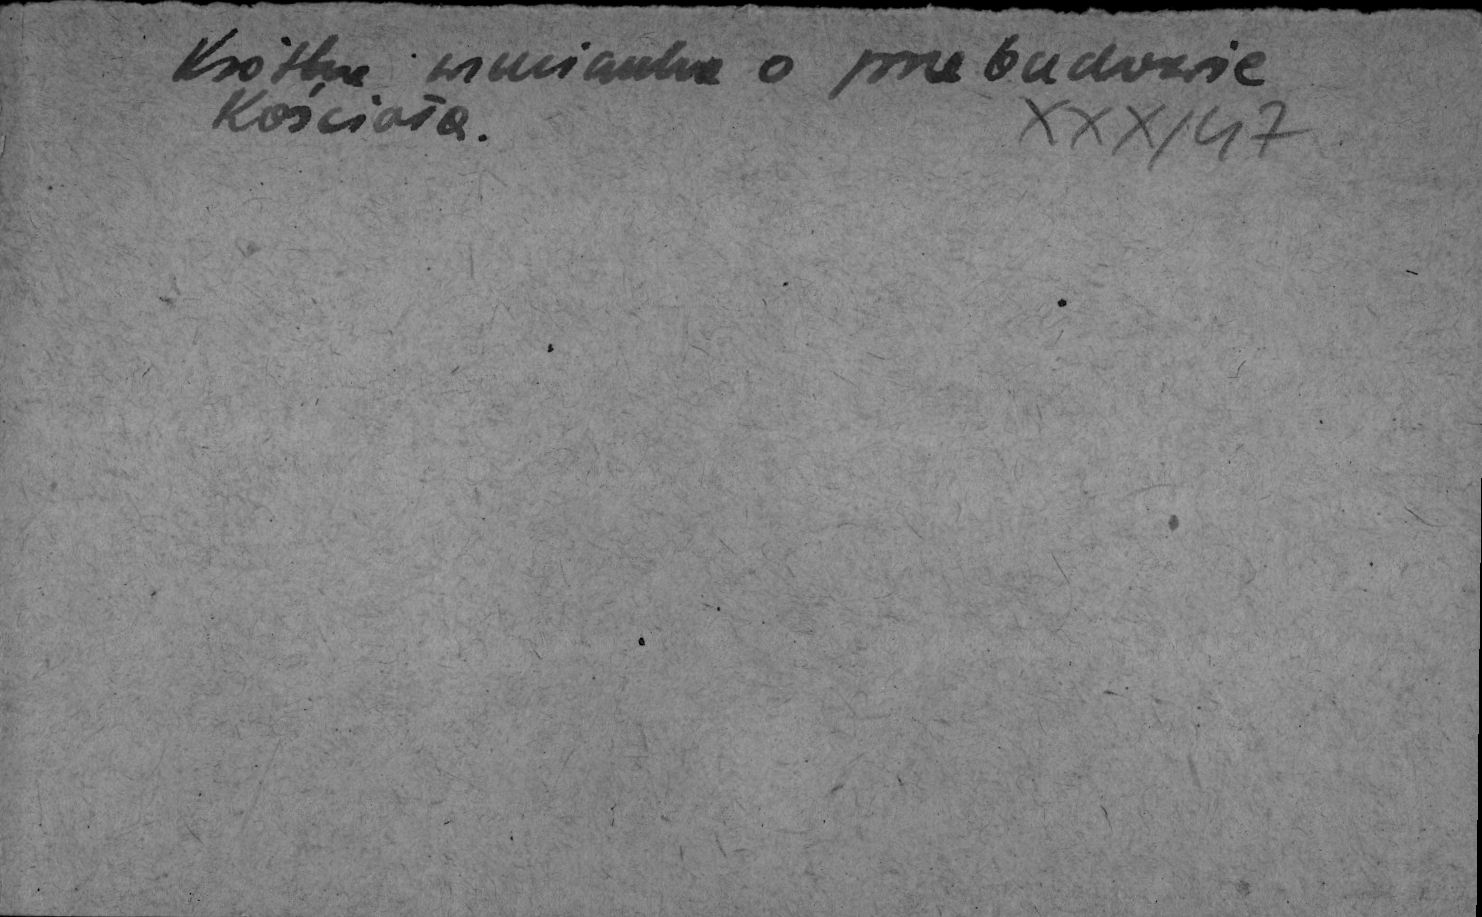 Krótka wzmianka o przebudowie
Kościoła.
XXX/47